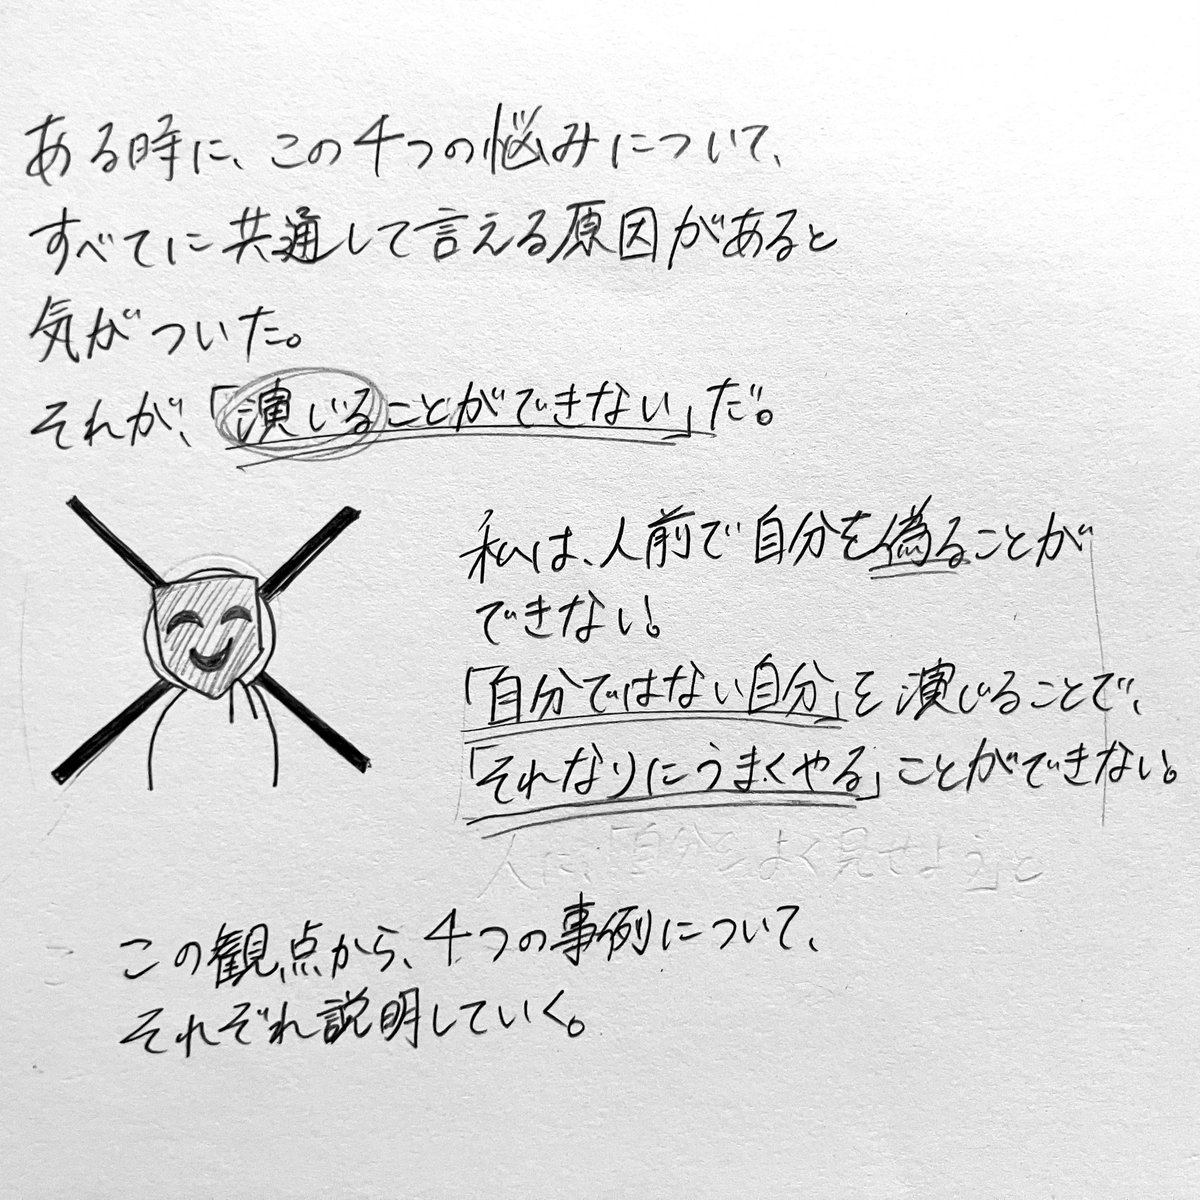 ある時に、この4つの悩みについて、
すべてに共通して言える原因があると
気がついた。
それが、「演じることができない」だ。
私は、人前で自分を偽ることが
できない。
「自分ではない自分」を演じることで、
「それなりにうまくやる」ことができない。
人に、「自分をよく見せよう」と
この観点から、4つの事例について、
それぞれ説明していく。